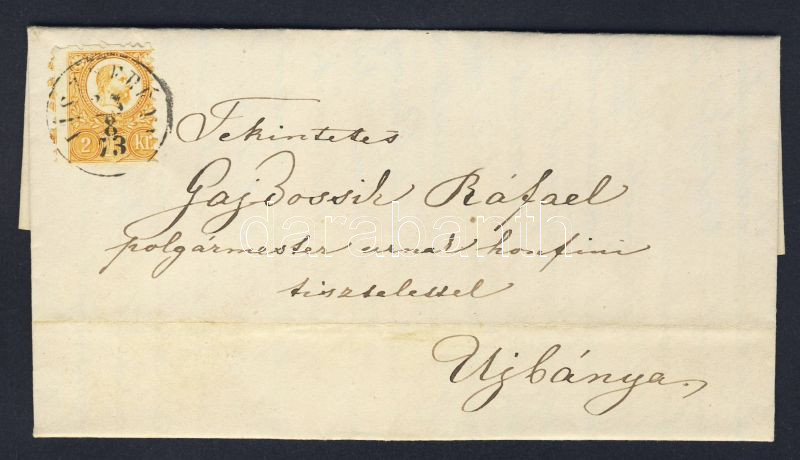 2 Kr.
8
73
Tekintetes
Gajdossik Ráfael
polgármester urnak honfini
tisztelettel
Ujbánya.
darabanth